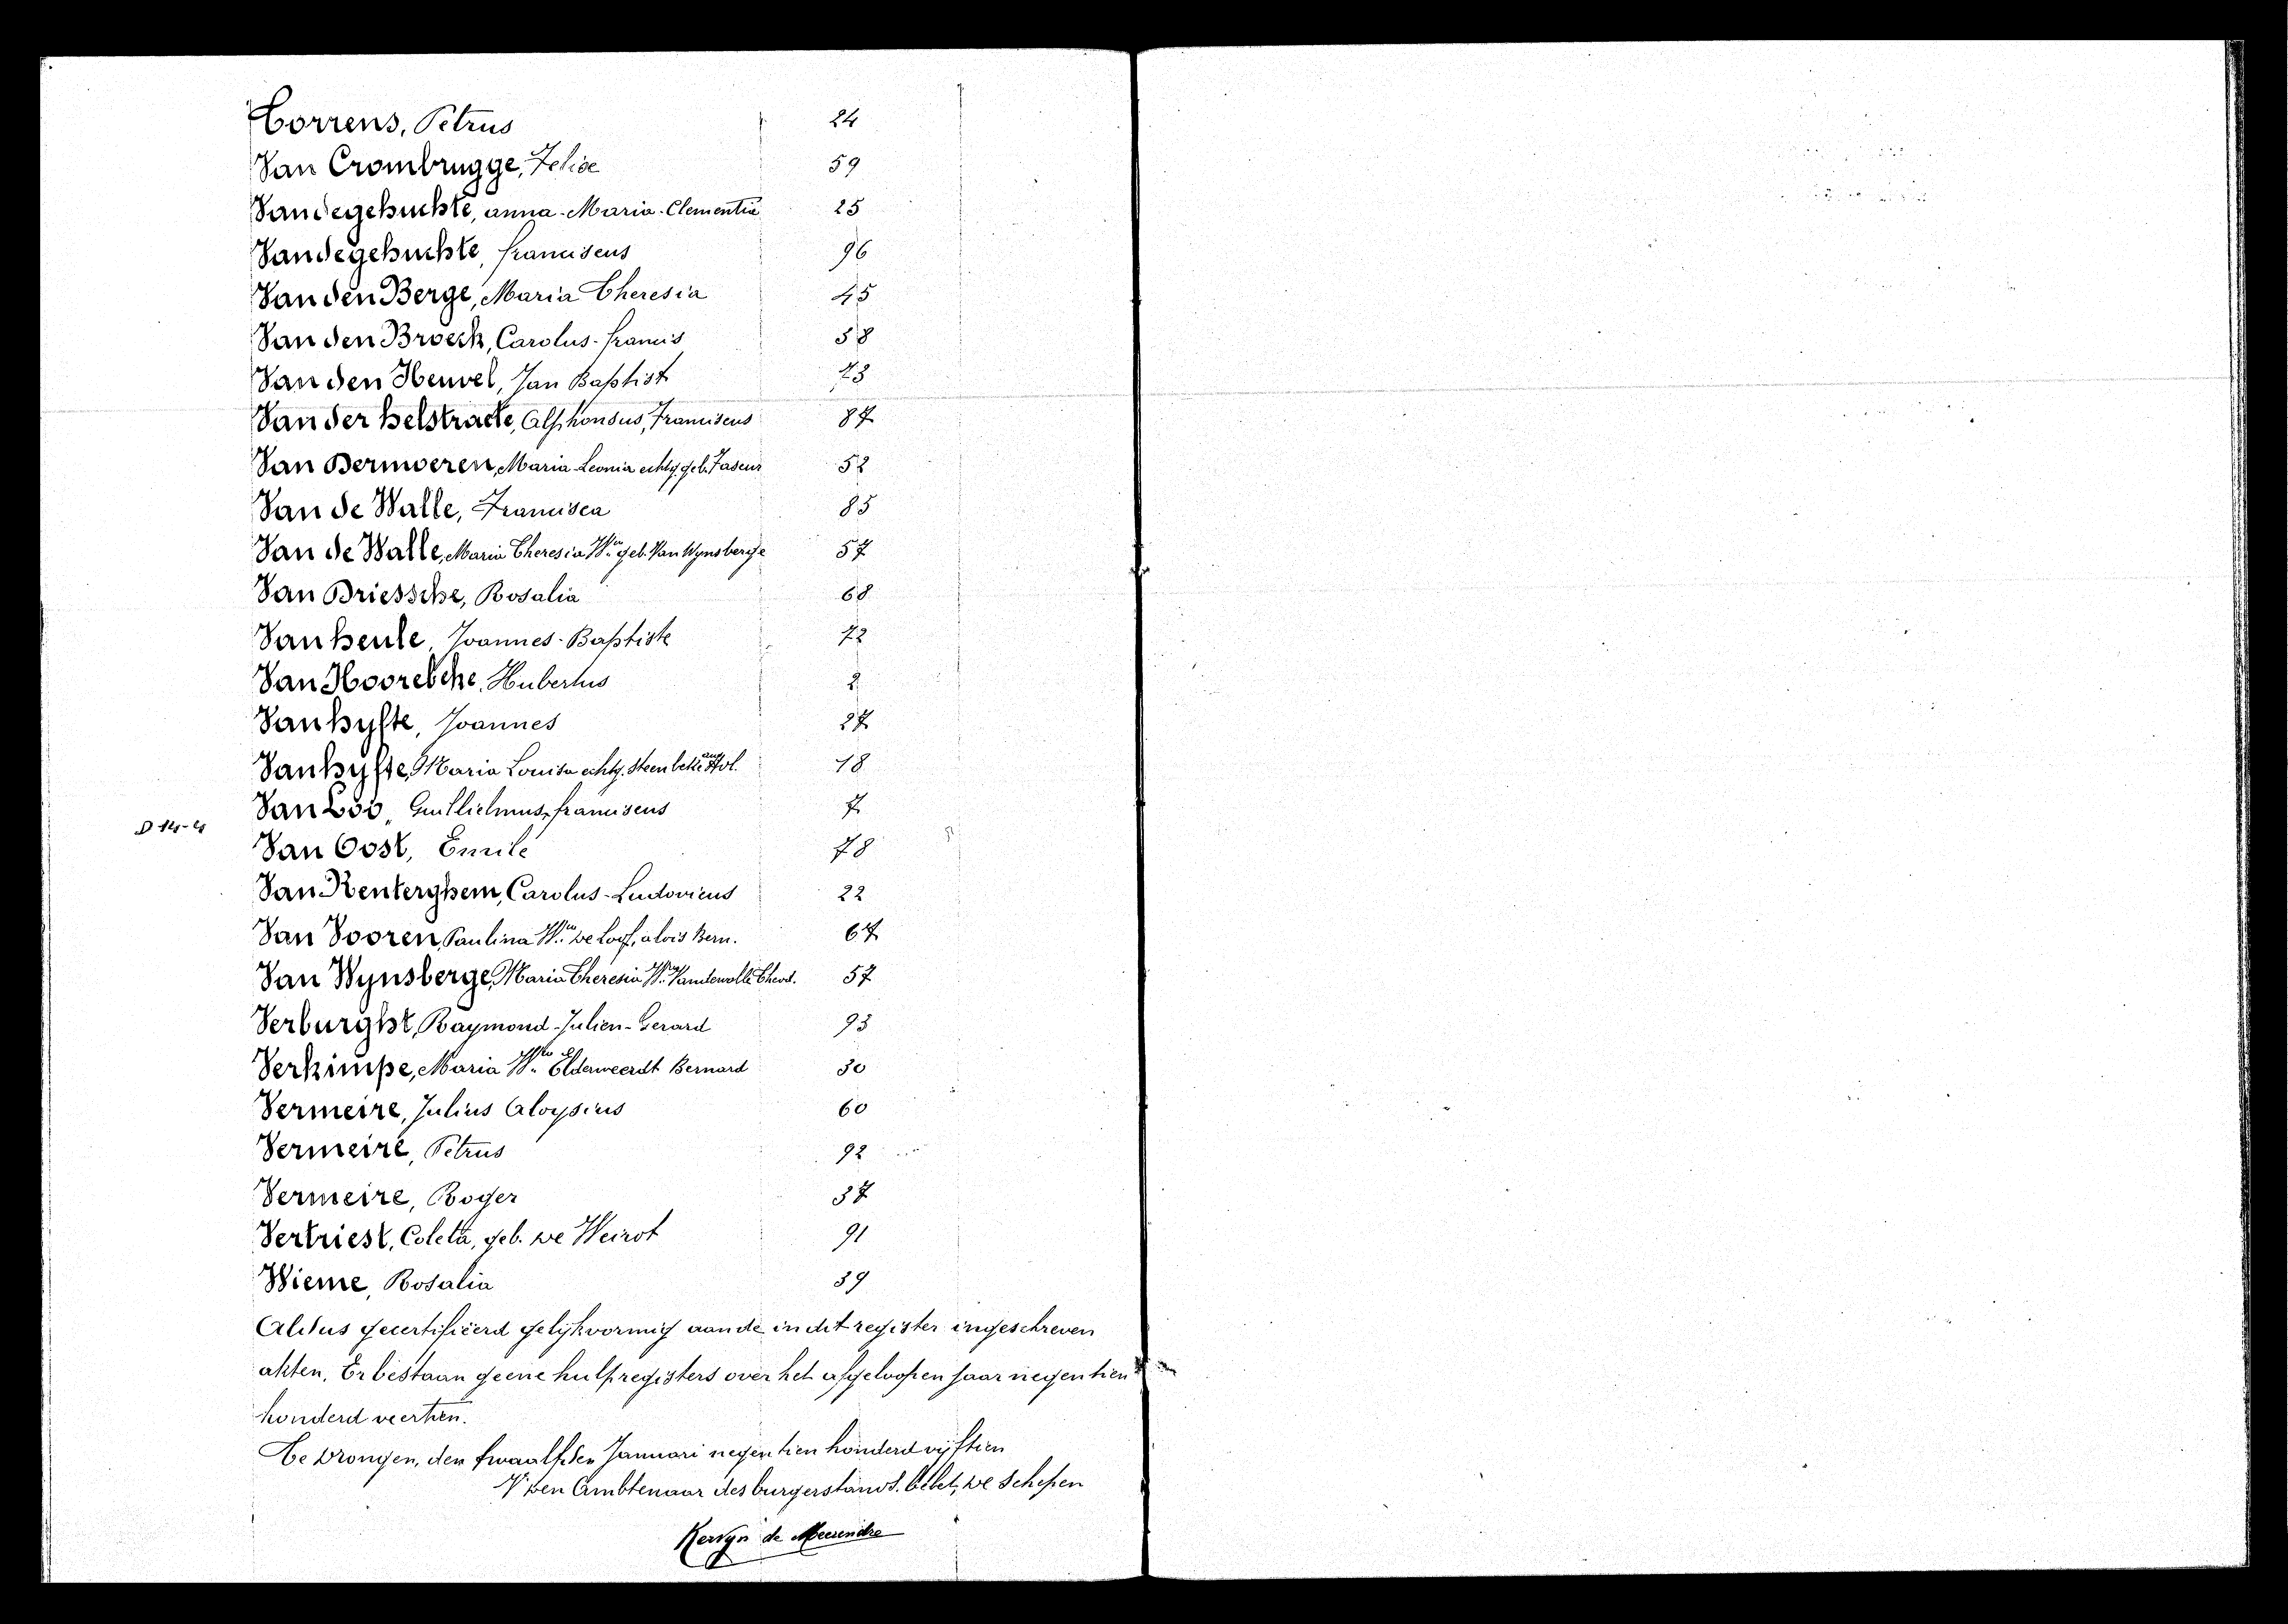 Correns, Petrus 24
Van Crombrugge, Felice 59
Vandegehuchte, anna-Maria-Clementia 25
Vandegehuchte, franciscus 96
Van den Berge, Maria Theresia 45
Van den Broeck, Carolus-francis 58
Van den Heuvel, Jan Baptist 23
Van der helstraete, Alphonsus, Franciscus 87
Van Dermoeren, Maria Leonia echtg. geb. Taseur 52
Van de Walle, Francisca 85
Van de Walle, Maria Theresia Wwe geb. Van Wynsberge 57
Van Driessche, Rosalia 68
Van heule, Joannes-Baptiste 72
Van Hoorebeke, Hubertus 2
Van hyfte, Joannes 27
Van hyfte, Maria Louisa echtg. Steenbeke aug 18
Van Loo, Guillielmus, franciscus 7
D 14-4
Van Oost, Emile 78
Van Renterghem, Carolus-Ludovicus 22
Van Vooren, Paulina Wwe De Loof, alois Bern. 67
Van Wynsberge, Maria Theresia Wwe Vandewalle Theod. 57
Verburght, Raymond-Julien-Gerard 93
Verkimpe, Maria Wwe Elderweerdt Bernard 30
Vermeire, Julius Aloysius 60
Vermeire, Petrus 92
Vermeire, Roger 37
Vertriest, Coleta, geb. De Weirot 91
Wieme, Rosalia 39
Aldus gecertifiëerd gelijkvormig aan de in dit register ingeschreven
akten. Er bestaan geene hulpregisters over het afgeloopen jaar negentien
honderd veertien.
Te Drongen, den twaalfden Januari negentien honderd vijftien
Den Ambtenaar des burgerstands. belet, De Schepen
Kervyn de Meerendre